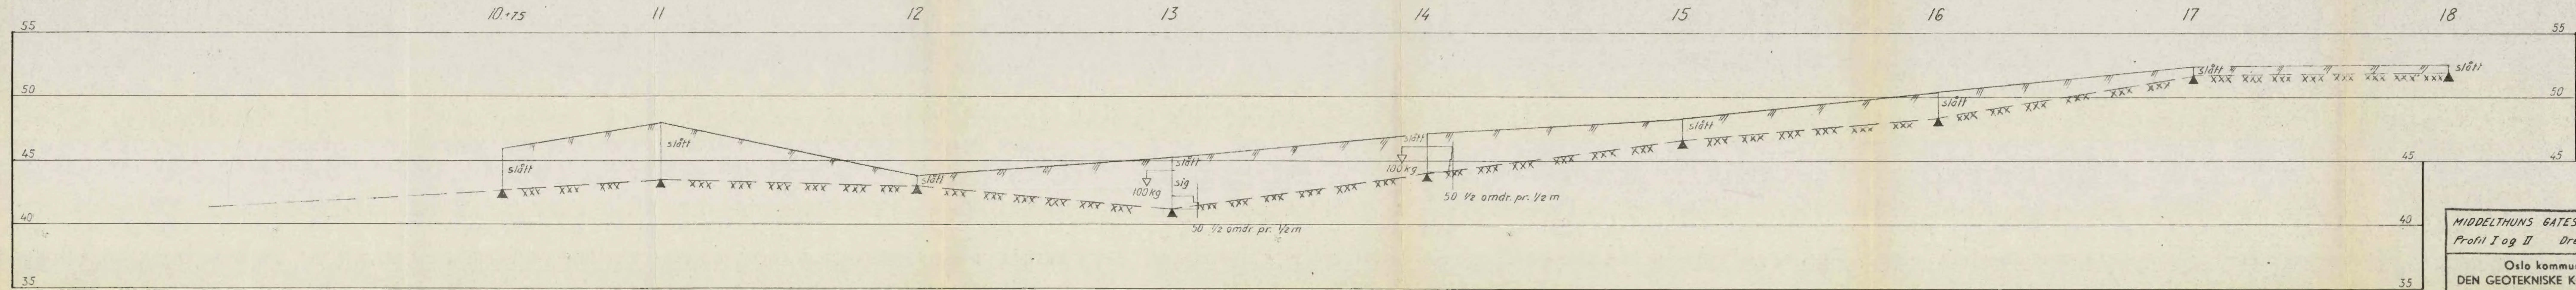 10.+75 11 12 13 14 15 16 17 18
55 55
50 50
45 45 45
40 40
35 35
slått
slått
slått
slått
100 kg
sig
50 1/2 omdr. pr. 1/2 m
slått
100 kg
50 1/2 omdr. pr. 1/2 m
slått
slått
slått
slått
MIDDELTHUNS GATES
Profil I og II
Oslo
DEN GEOTEKNISKE